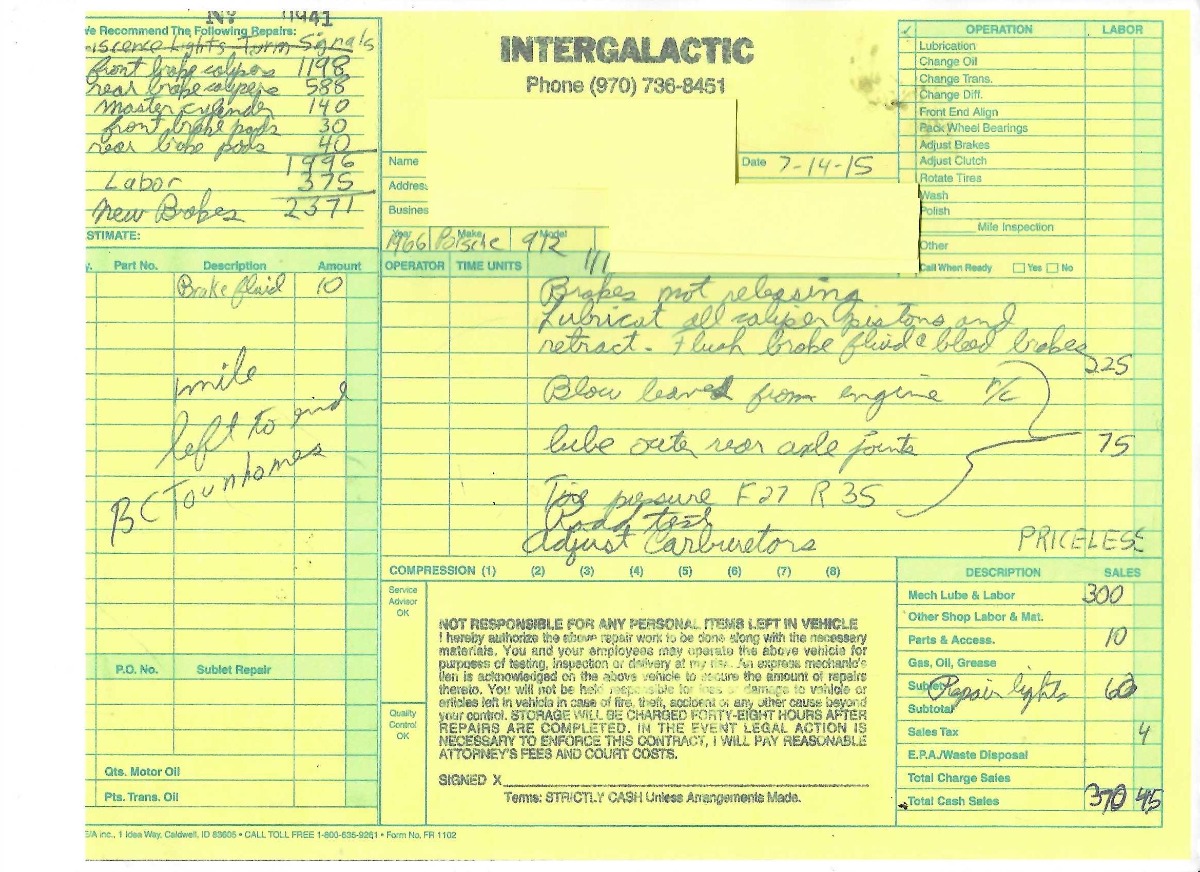 NY 11941
We Recommend The Following Repairs:
Lights Turn Signals
front brake calipers 1198
rear brake calipers 588
master cylinder 140
front brake pads 30
rear brake pads 40
1996
Labor 375
New Brakes 2371
STIMATE:
INTERGALACTIC
Phone (970) 736-8451
Name
Date 7-14-15
Address
Business
Year Make Model
1966 Porsche 912
✓ OPERATION LABOR
Lubrication
Change Oil
Change Trans.
Change Diff.
Front End Align
Pack Wheel Bearings
Adjust Brakes
Adjust Clutch
Rotate Tires
Wash
Polish
Mile Inspection
Other
Call When Ready Yes No
Part No. Description Amount
Brake fluid 10
1 mile
left to end
BC Townhomes
P.O. No. Sublet Repair
Qts. Motor Oil
Pts. Trans. Oil
OPERATOR TIME UNITS
Brakes not releasing
Lubricat all caliper pistons and
retract - Flush brake fluid & bleed brakes
225
Blow leaves from engine n/c
lube outer rear axle joints 75
Tire pressure F27 R 35
Road test
Adjust Carburetors PRICELESS
COMPRESSION (1) (2) (3) (4) (5) (6) (7) (8)
Service
Advisor
OK
Quality
Control
OK
NOT RESPONSIBLE FOR ANY PERSONAL ITEMS LEFT IN VEHICLE
I hereby authorize the above repair work to be done along with the necessary
materials. You and your employees may operate the above vehicle for
purposes of testing, inspection or delivery at my risk. An express mechanic's
lien is acknowledged on the above vehicle to secure the amount of repairs
thereto. You will not be held responsible for loss or damage to vehicle or
articles left in vehicle in case of fire, theft, accident or any other cause beyond
your control. STORAGE WILL BE CHARGED FORTY-EIGHT HOURS AFTER
REPAIRS ARE COMPLETED. IN THE EVENT LEGAL ACTION IS
NECESSARY TO ENFORCE THIS CONTRACT, I WILL PAY REASONABLE
ATTORNEY'S FEES AND COURT COSTS.
SIGNED X
Terms: STRICTLY CASH Unless Arrangements Made.
DESCRIPTION SALES
Mech Lube & Labor 300
Other Shop Labor & Mat.
Parts & Access. 10
Gas, Oil, Grease
Sublet Repair lights 60
Subtotal
Sales Tax 4
E.P.A./Waste Disposal
Total Charge Sales
Total Cash Sales 370 45
E/A inc., 1 Idea Way, Caldwell, ID 83605 • CALL TOLL FREE 1-800-635-9261 • Form No. FR 1102